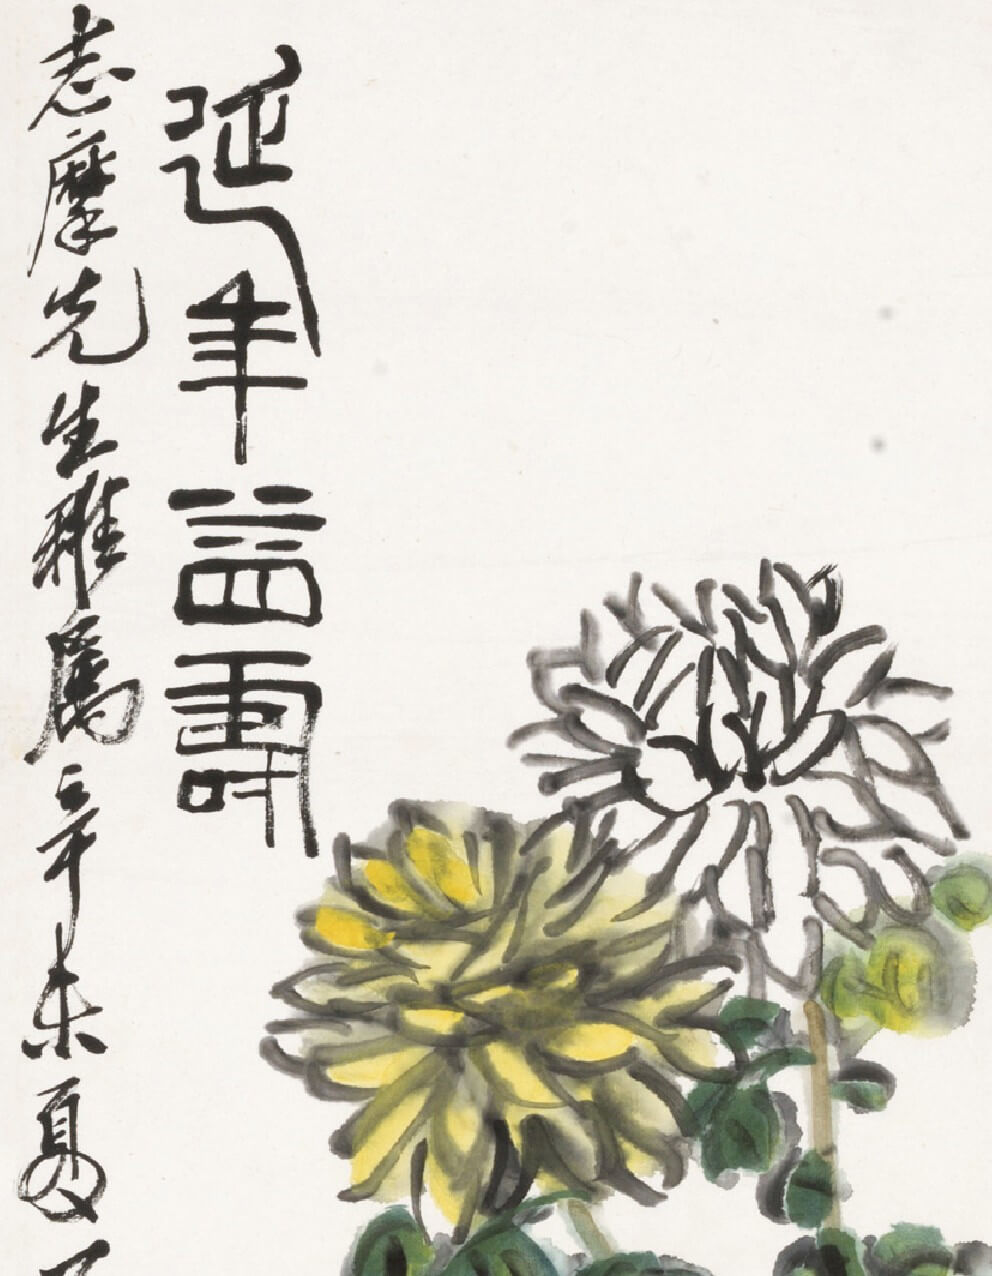 延年益壽
志摩先生雅屬辛未夏